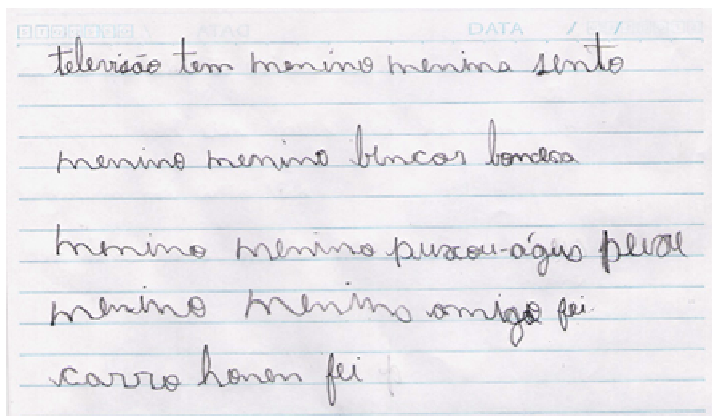 DATA / /
televisão tem menino menina sento
menino menino bincar boneca
menino menino puxou-água peixe
menino menino amigo fei
carro honen fei